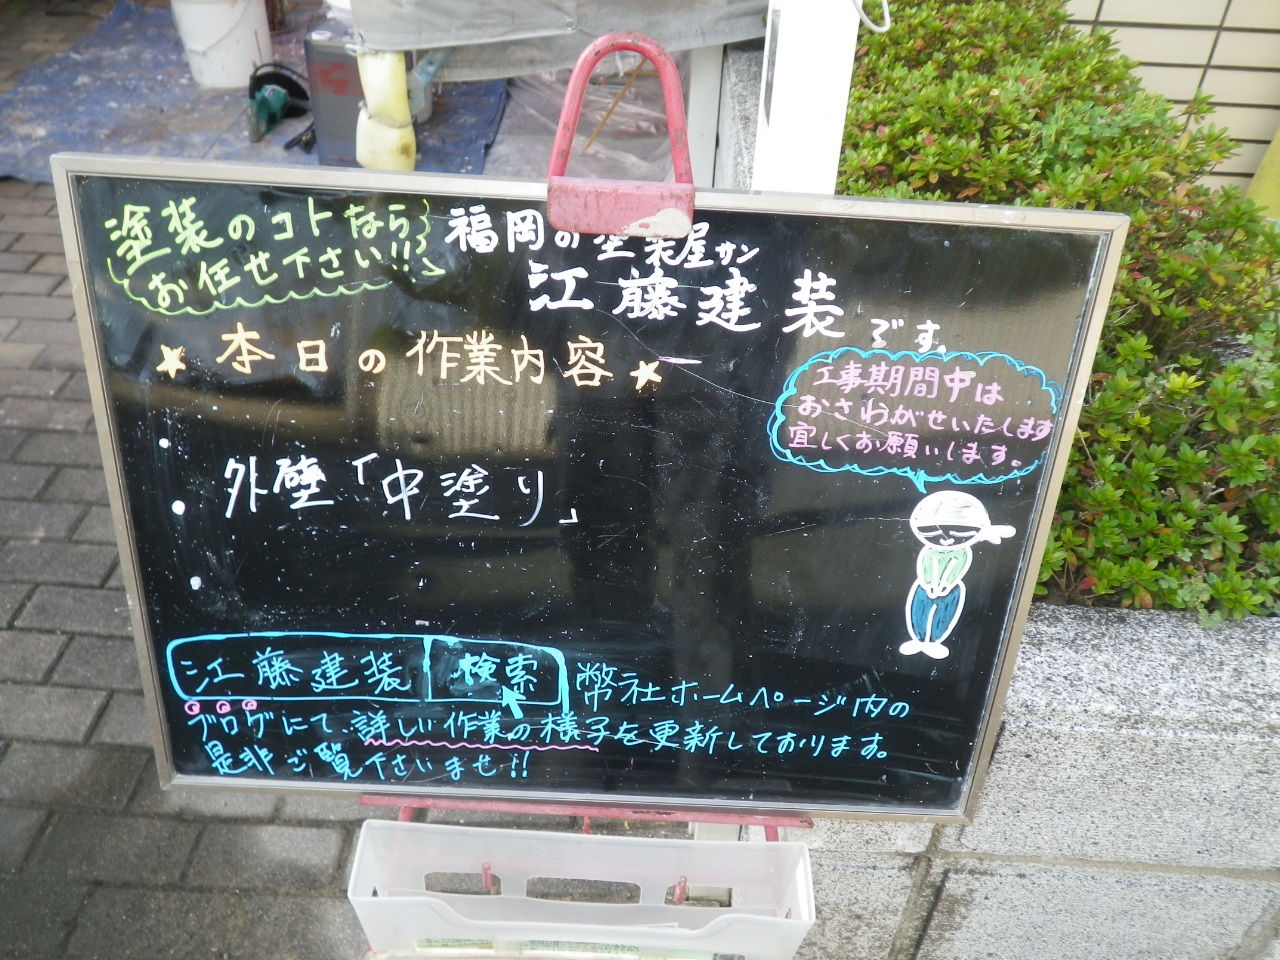 塗装のコトなら
お任せ下さい!!
福岡の塗装屋サン
江藤建装です。
★本日の作業内容★
工事期間中は
おさわがせいたします
宜しくお願いします。
・
・外壁「中塗り」
・
江藤建装 検索 幣社ホームページ内の
ブログにて、詳しい作業の様子を更新しております。
是非ご覧下さいませ!!